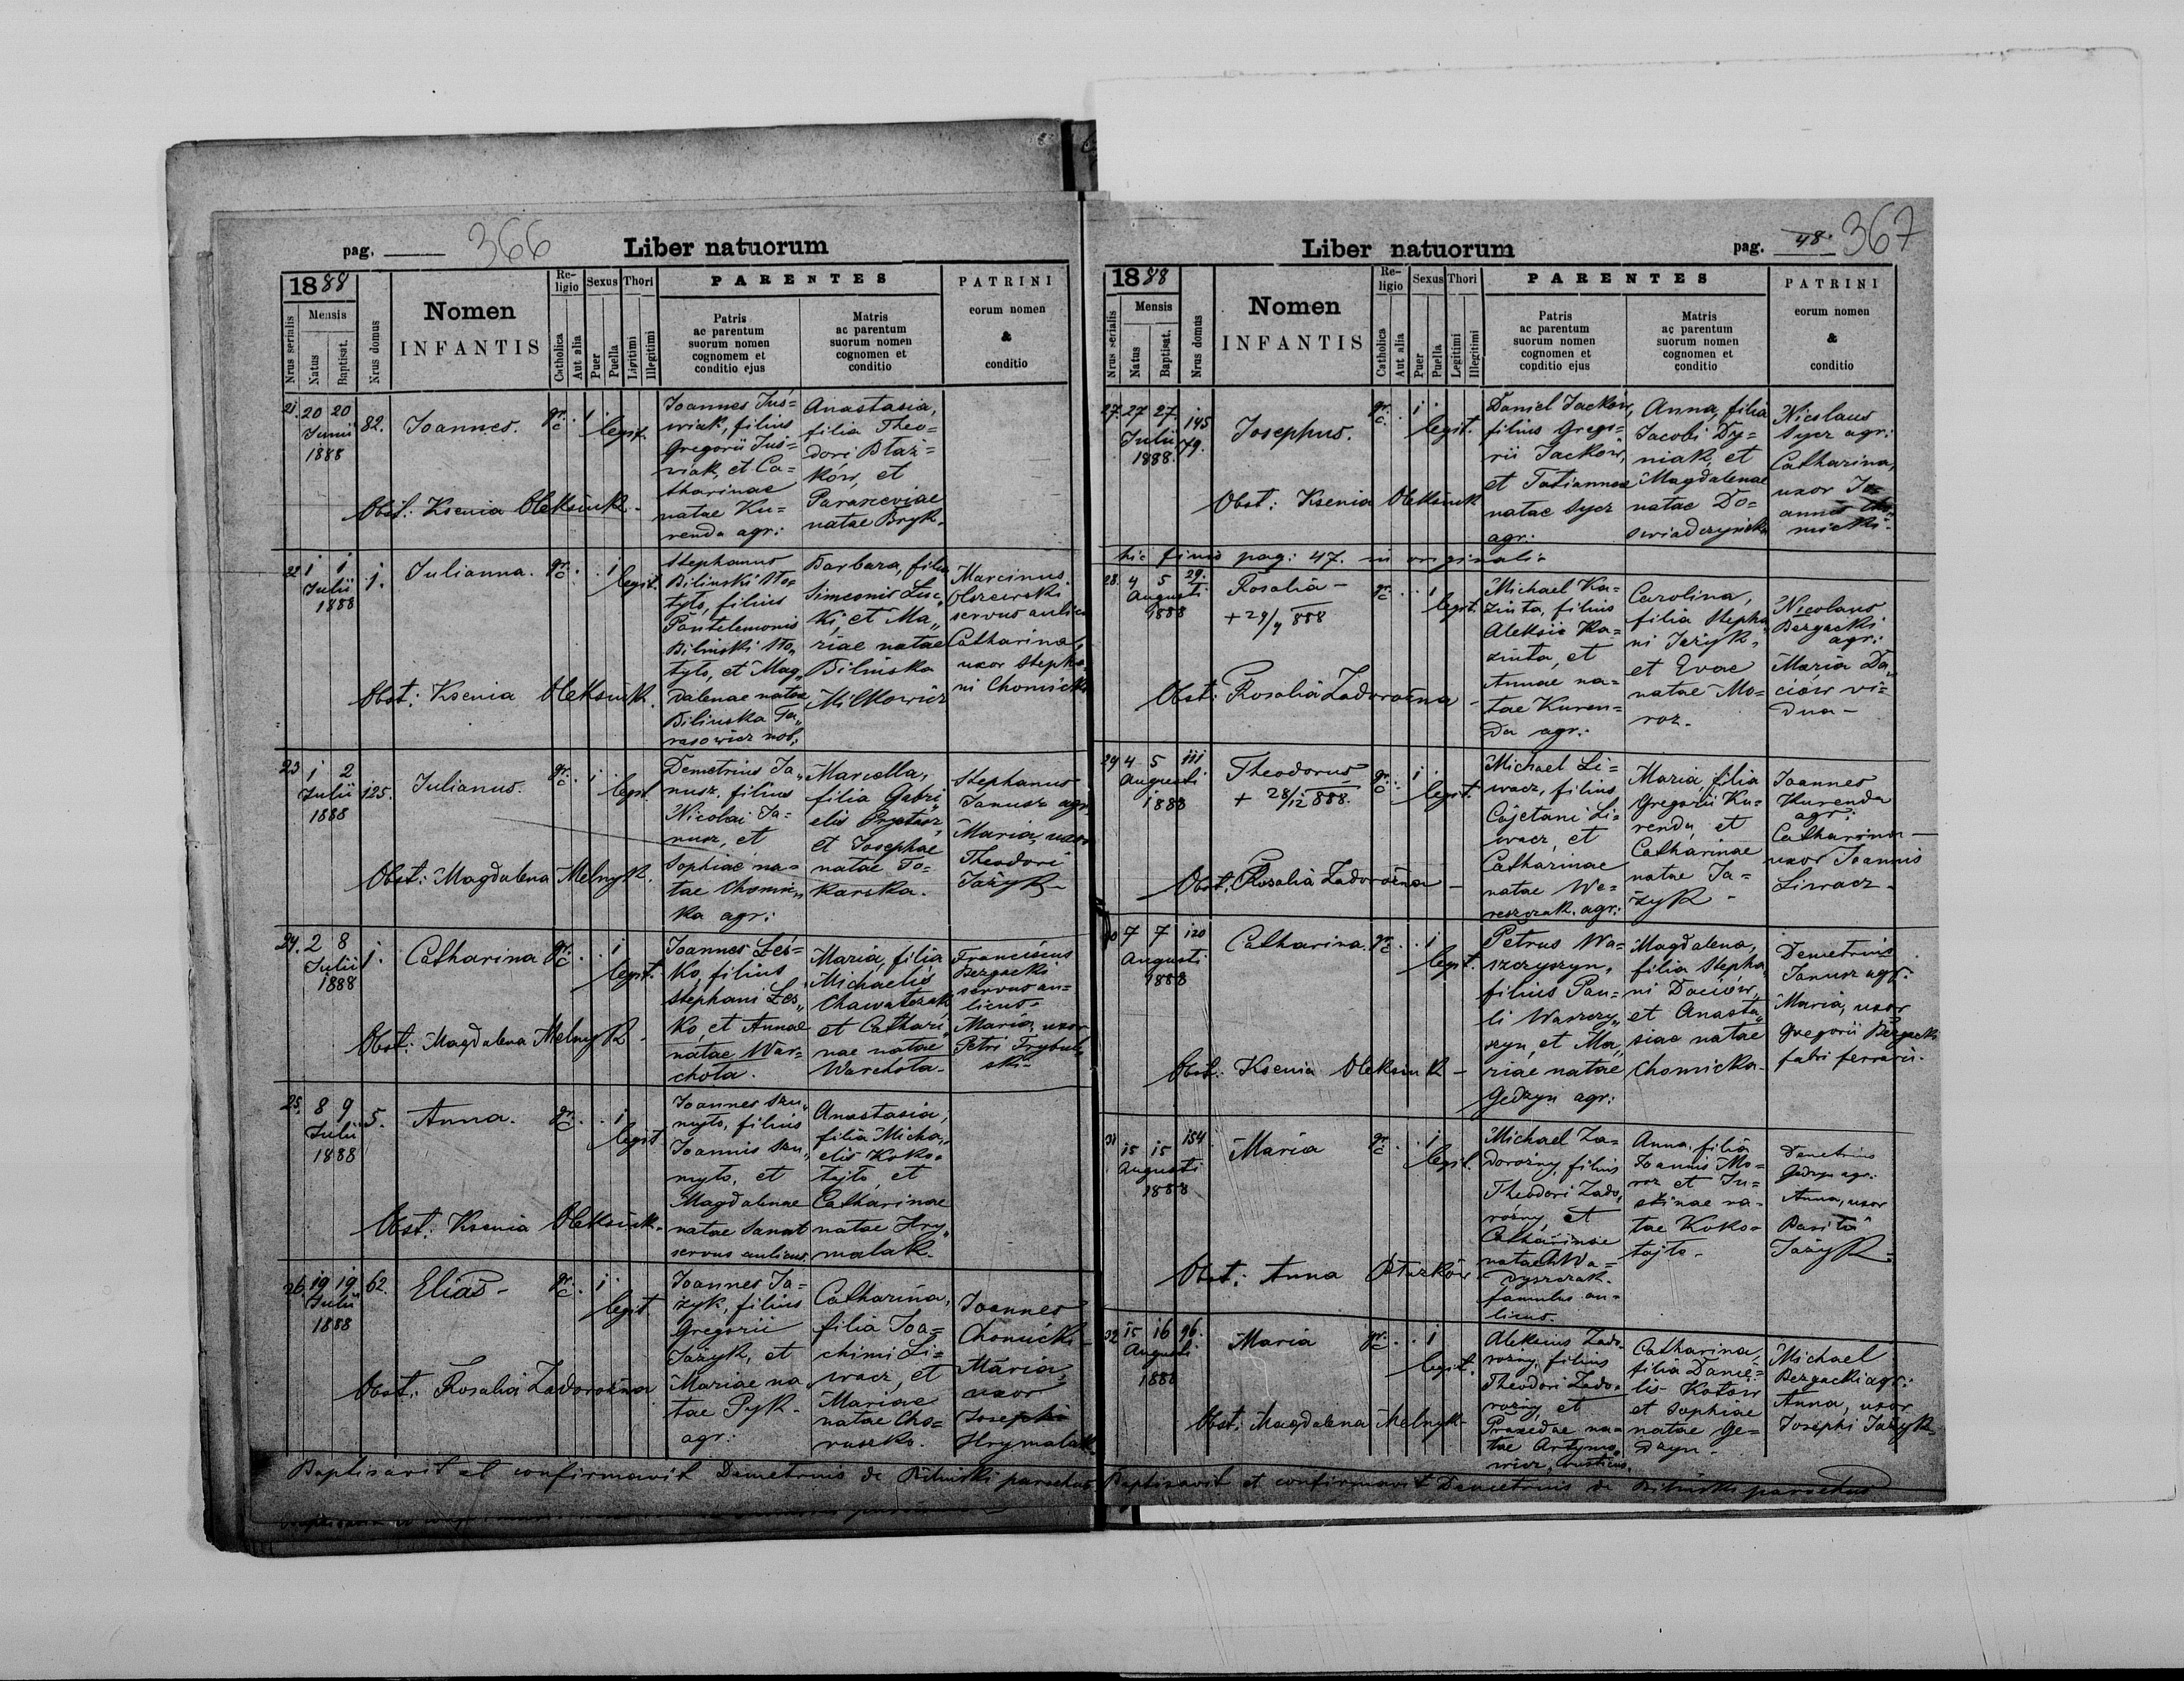 pag. 366
Liber natuorum
1888
Nrus serialis
Mensis
Natus
Baptisat.
Nrus domus
Nomen
INFANTIS
Re-
ligio
Catholica
Aut alia
Sexus
Puer
Puella
Thori
Ligitimi
Illegitimi
PARENTES
Patris
ac parentum
suorum nomen
cognomem et
conditio ejus
Matris
ac parentum
suorum nomen
cognomen et
conditio
PATRINI
eorum nomen
&
conditio
21. 20 20
Junii
1888
82. Joannes.
gr. c. i legit.
Joannes Juś=
wiak, filius
Gregorii Juś=
wiak, et Ca=
tharinae
natae Ku=
renda agr:
Anastasia,
filia Theo=
dori Błaż=
ków, et
Parasceviae
natae Bryk.
Obst: Ksenia Oleksiuk.
22. 1 1
Julii
1888
1. Julianna.
gr. c. i legit.
Stephanus
Biliński Mo=
tyło, filius
Pantelemonis
Biliński Mo„
tyło, et Mag„
dalenae natae
Bilinska Ta„
rasowicz nob:
Barbara, filia
Simeonis Lis„
ki, et Ma„
riae natae
Bilińska
Milkowicz
Marcinus
Olszewski
servus aulicus
Catharina,
uxor Stepha„
ni Chomicki
Obst: Ksenia Oleksiuk.
23 1 2
Julii
1888
125. Julianus.
gr. c. i legit.
Demetrius Ja„
nusz, filius
Nicolai Ja=
nusz, et
Sophiae na=
tae Chomic„
ka agr:
Marcella,
filia Gabri„
elis Prytasz,
et Josephae
natae To=
karska.
Stephanus
Janusz agr.
Maria, uxor
Theodori
Jażyk
Obst: Magdalena Melnyk.
24. 2 8
Julii
1888
1. Catharina
gr. c. i legit.
Joannes Leś=
ko, filius
Stephani Leś„
ko et Annae
natae War=
chota.
Maria, filia
Michaelis
Chawałczak,
et Cathari„
nae natae
Warchota
Franciscus
Bezgacki
servus au=
licus
Maria, uxor
Petri Trybul„
ski
Obst: Magdalena Melnyk
25. 8 9
Julii
1888
5. Anna.
gr. c. i legit
Joannes Szu„
myło, filius
Joannis Szu„
myło, et
Magdalenae
natae Sanat
servus aulicus.
Anastasia,
filia Micha„
elis Koko=
tajło, et
Catharinae
natae Hry„
malak.
Obst: Ksenia Oleksiuk.
26. 19 19
Julii
1888
62. Elias
gr. c. i legit
Joannes Ja=
żyk, filius
Gregorii
Jażyk, et
Mariae na
tae Pyk.
agr:
Catharina,
filia Joa=
chimi Li=
wacz, et
Mariae
natae Cho=
ruszko.
Joannes
Chomicki
Maria,
uxor
Josephi
Hrymalak.
Obst: Rosalia Zadorożna
Baptisavit et confirmavit Demetrius de Biliński parochus
Liber natuorum
pag. 48. 367
1888
Nrus serialis
Mensis
Natus
Baptisat.
Nrus domus
Nomen
INFANTIS
Re-
ligio
Catholica
Aut alia
Sexus
Puer
Puella
Thori
Legitimi
Illegitimi
PARENTES
Patris
ac parentum
suorum nomen
cognomen et
conditio ejus
Matris
ac parentum
suorum nomen
cognomen et
conditio
PATRINI
eorum nomen
&
conditio
27. 27 27
Julii
1888.
145
79.
Josephus.
gr. c. i legit.
Daniel Jacków,
filius Grego=
rii Jacków,
et Tatiannae
natae Sycz
agr:
Anna, filia
Jacobi Dy=
niak, et
Magdalenae
natae Do=
swiadczyńska
Nicolaus
Sycz agr:
Catharina,
uxor Jo=
annis Cho„
micki.
Obst: Ksenia Oleksiuk
hic finis pag: 47. in originali
28. 4 5
Augusti
1888
29. Rosalia
+ 29/9 888
gr. c. i legit.
Michael Ka=
zinta, filius
Aleksii Ka=
zinta, et
Annae na=
tae Kuren=
da agr:
Carolina,
filia Stepha„
ni Jażyk,
et Evae
natae Mo=
roz.
Nicolaus
Bezgacki
agr:
Maria Da„
ciów vi=
dua
Obst: Rosalia Zadorożna
29 4 5
Augusti
1888
111
Theodorus
+ 28/12 888.
gr. c. i legit.
Michael Li=
wacz, filius
Cajetani Li=
wacz, et
Catharinae
natae We=
reszczak. agr:
Maria, filia
Gregorii Ku=
renda, et
Catharinae
natae Ja=
żyk
Joannes
Kurenda
agr:
Catharina
uxor Joannis
Liwacz
Obst: Rosalia Zadorożna
30 7 7
Augusti
1888
120
Catharina.
gr. c. i legit.
Petrus Wa=
szczyszyn,
filius Pau=
li Waszczy„
szyn, et Ma„
riae natae
Gedzyn agr:
Magdalena,
filia Stepha„
ni Daciów,
et Anasta„
siae natae
Chomicka
Demetrius
Janusz agr:
Maria, uxor
Gregorii Bezgacki
fabri ferrarii.
Obst: Ksenia Oleksiuk
31 15 15
Augusti
1888
154
Maria
gr. c. i legit.
Michael Za=
dorożny, filius
Theodori Zado„
rożny, et
Catharinae
natae Wa=
dyszczak.
famulus au=
licus.
Anna, filia
Joannis Mo=
roz et Ju=
stinae na=
tae Koko=
tajło.
Demetrius
Gedzyn agr:
Anna, uxor
Basilii
Jażyk
Obst: Anna Błażków
32 15 16
Augusti
1888
96.
Maria
gr. c. i legit.
Aleksius Zado„
rożny, filius
Theodori Zado=
rożny, et
Praxedae na=
tae Artymo„
wicz, rusticus.
Catharina,
filia Danie=
lis Kotów
et Sophiae
natae Ge=
dzyn
Michael
Bezgacki agr:
Anna, uxor
Josephi Jażyk
Obst: Magdalena Melnyk
Baptisavit et confirmavit Demetrius de Biliński parochus